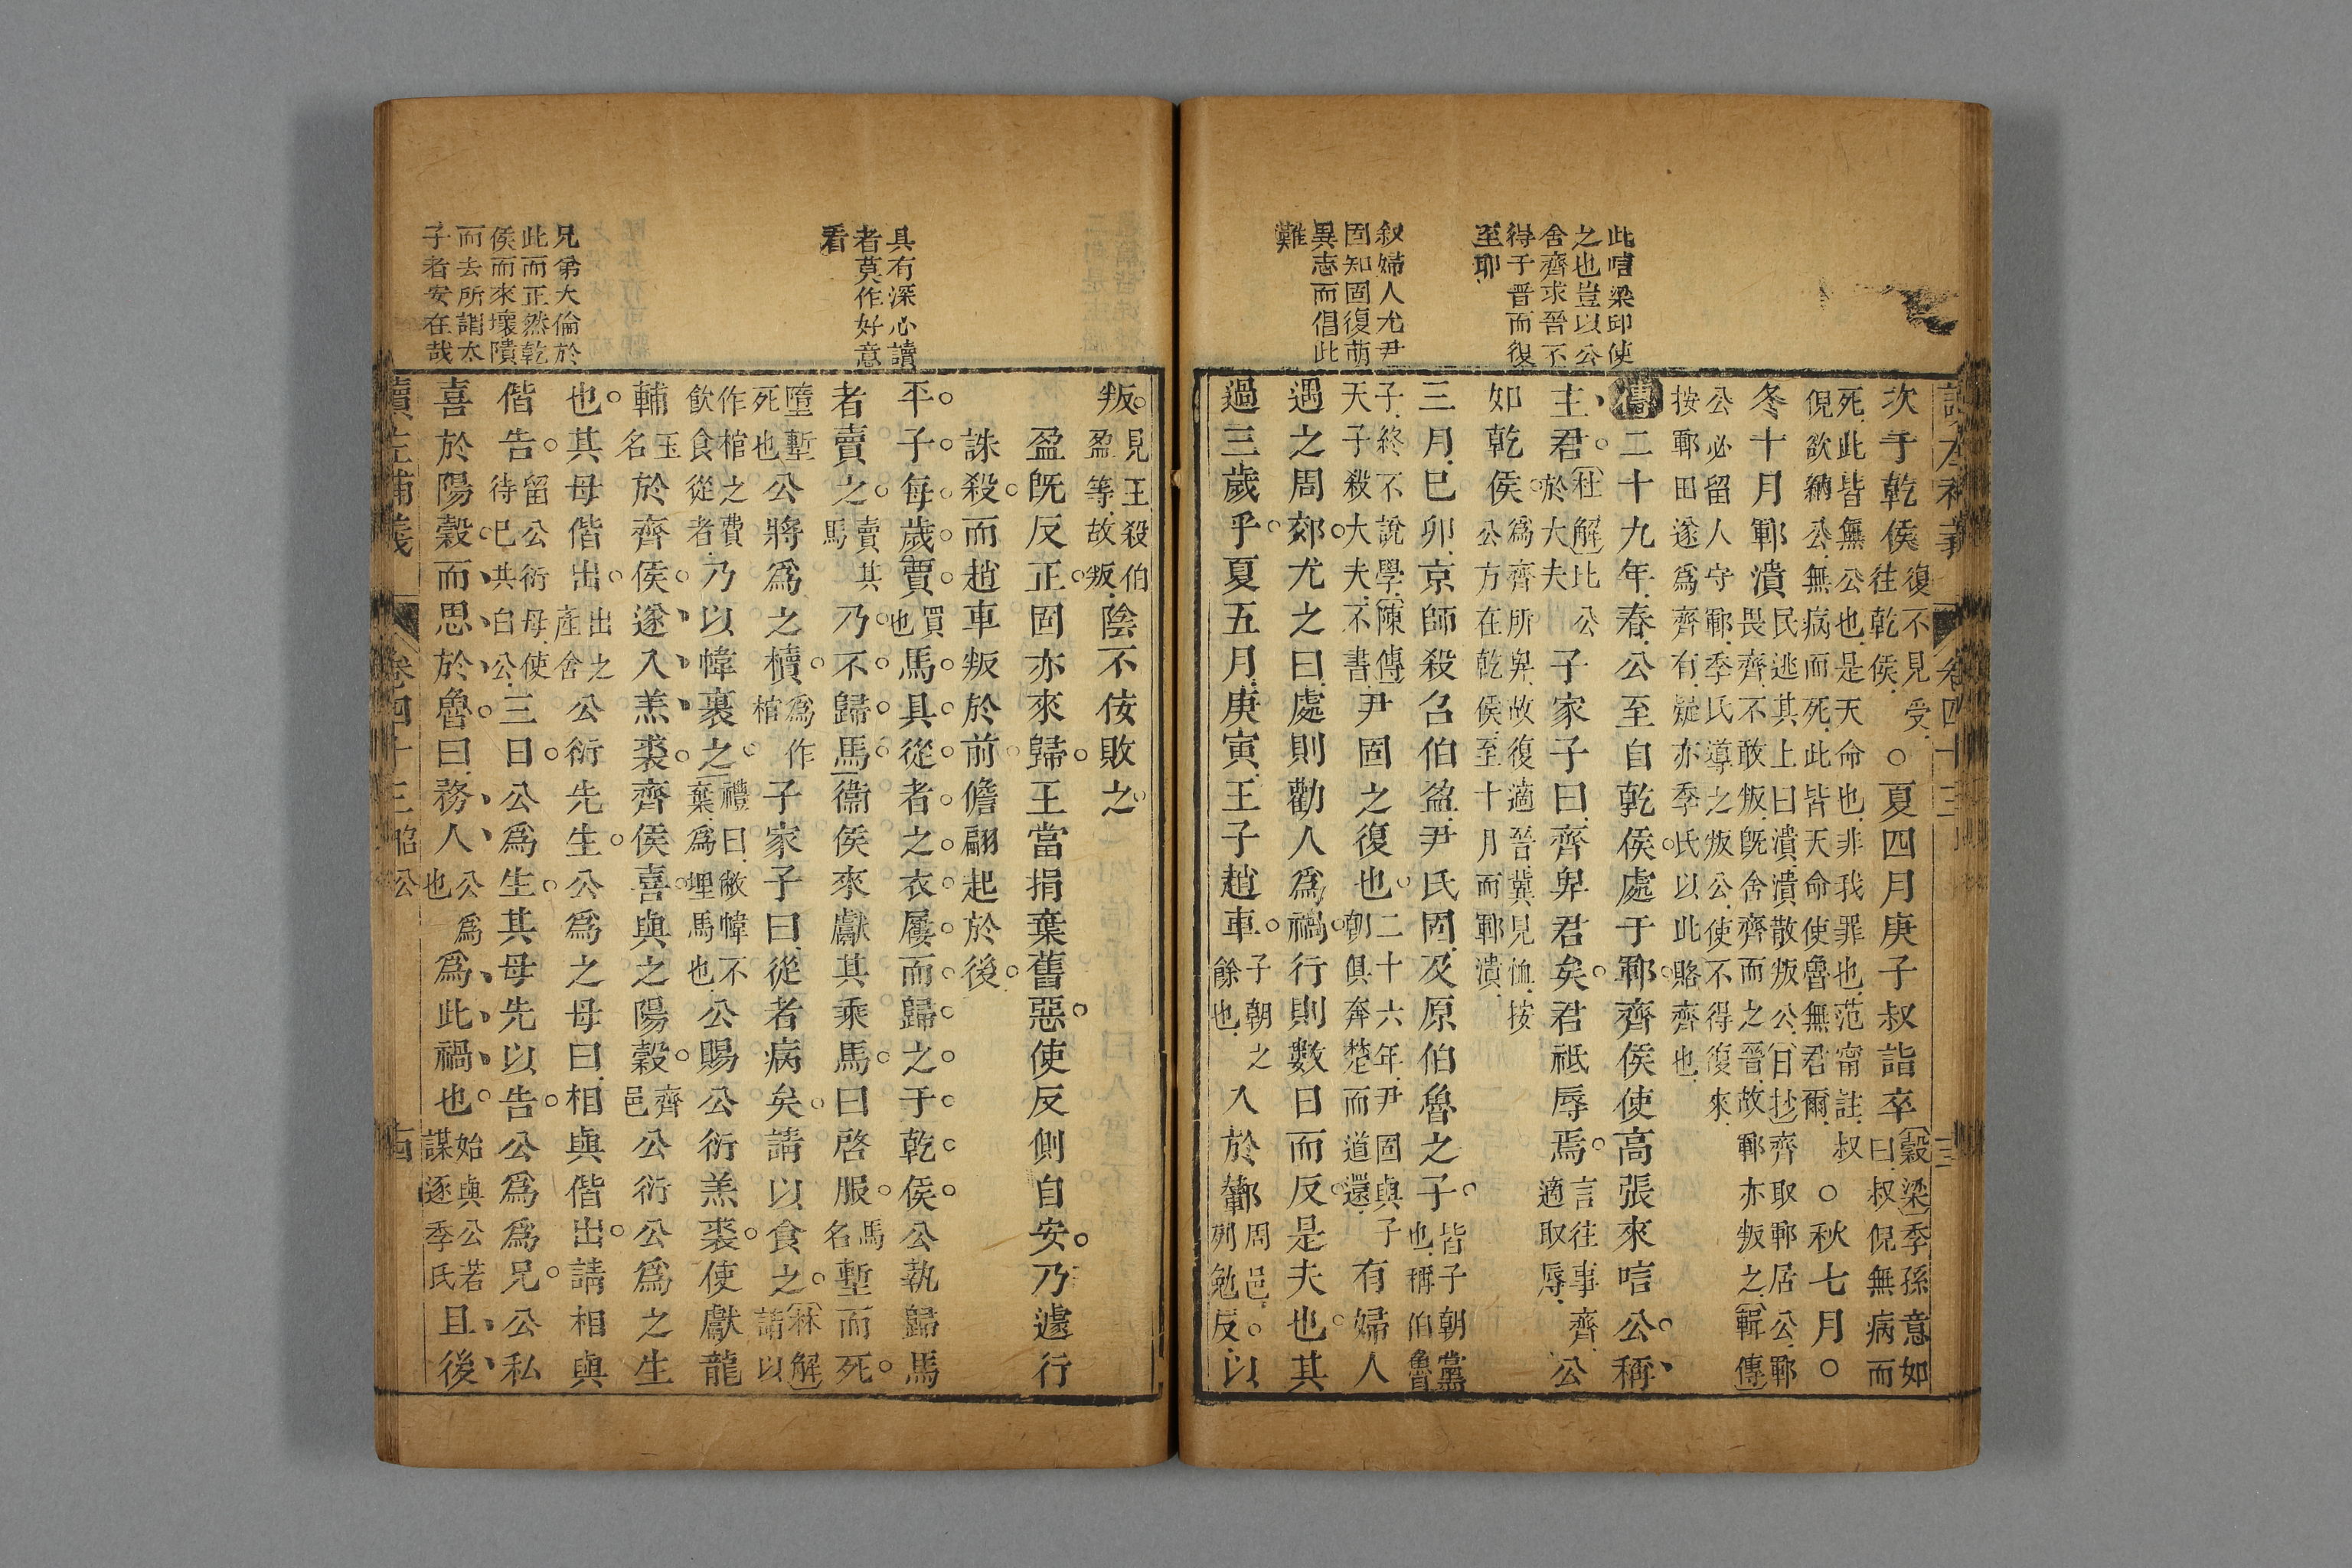 此唁梁卬使
之也豈以公
舍齊求晉不
得于晉而復
至耶
叙婦人尤尹
固知固復萌
異志而倡此
難
卷四十三
次于乾侯復不見受往乾侯○夏四月庚子叔詣卒穀梁季孫意如曰叔倪無病而
死此皆無公也是天命也非我罪也范甯註叔倪欲納公無病而死此皆天命使魯無君爾○秋七月○
冬十月鄆潰民逃其上曰潰潰散叛公日抄齊取鄆居公鄆畏齊不敢叛既舍齊而之晉故鄆亦叛之輯傳
公必留人守鄆季氏導之叛公使不得復來按鄆田遂爲齊有疑亦季氏以此賂齊也
傳二十九年春公至自乾侯處于鄆齊侯使高張來唁公稱
主君杜解比公於大夫子家子曰齊卑君矣君祗辱焉言往事齊適取辱公
如乾侯爲齊所卑故復適晉冀見恤按公方在乾侯至十月而鄆潰
三月巳卯京師殺召伯盈尹氏固及原伯魯之子皆子朝黨也稱伯魯
子終不說學陳傳天子殺大夫不書尹固之復也二十六年尹固與子朝俱奔楚而道還有婦人
遇之周郊尤之曰處則勸人爲禍行則數日而反是夫也其
過三歲乎夏五月庚寅王子趙車子朝之餘也入於鄻周邑列勉反以
叛見王殺伯盈等故叛陰不佞敗之
盈既反正固亦來歸王當捐棄舊惡使反側自安乃遽行
誅殺而趙車叛於前儋翩起於後
具有深心讀
者莫作好意
看
平子每歲賈買也馬具從者之衣屨而歸之于乾侯公執歸馬
者賣之賣其馬乃不歸馬衞侯來獻其乘馬曰啓服馬名塹而死
墮塹死也公將爲之櫝爲作棺子家子曰從者病矣請以食之林解請以
作棺之費飲食從者乃以幃裹之禮曰敝幃不棄爲埋馬也公賜公衍羔裘使獻龍
輔玉名於齊侯遂入羔裘齊侯喜與之陽穀齊邑公衍公爲之生
也其母偕出出之產舍公衍先生公爲之母曰相與偕出請相與
偕告留公衍母使待巳其白公三日公爲生其母先以告公爲爲兄公私
喜於陽穀而思於魯曰務人公爲也爲此禍也始與公若謀逐季氏且後
兄弟大倫於
此而正然乾
侯而來壞隤
而去所謂太
子者安在哉
讀左補義 卷四十三 昭公